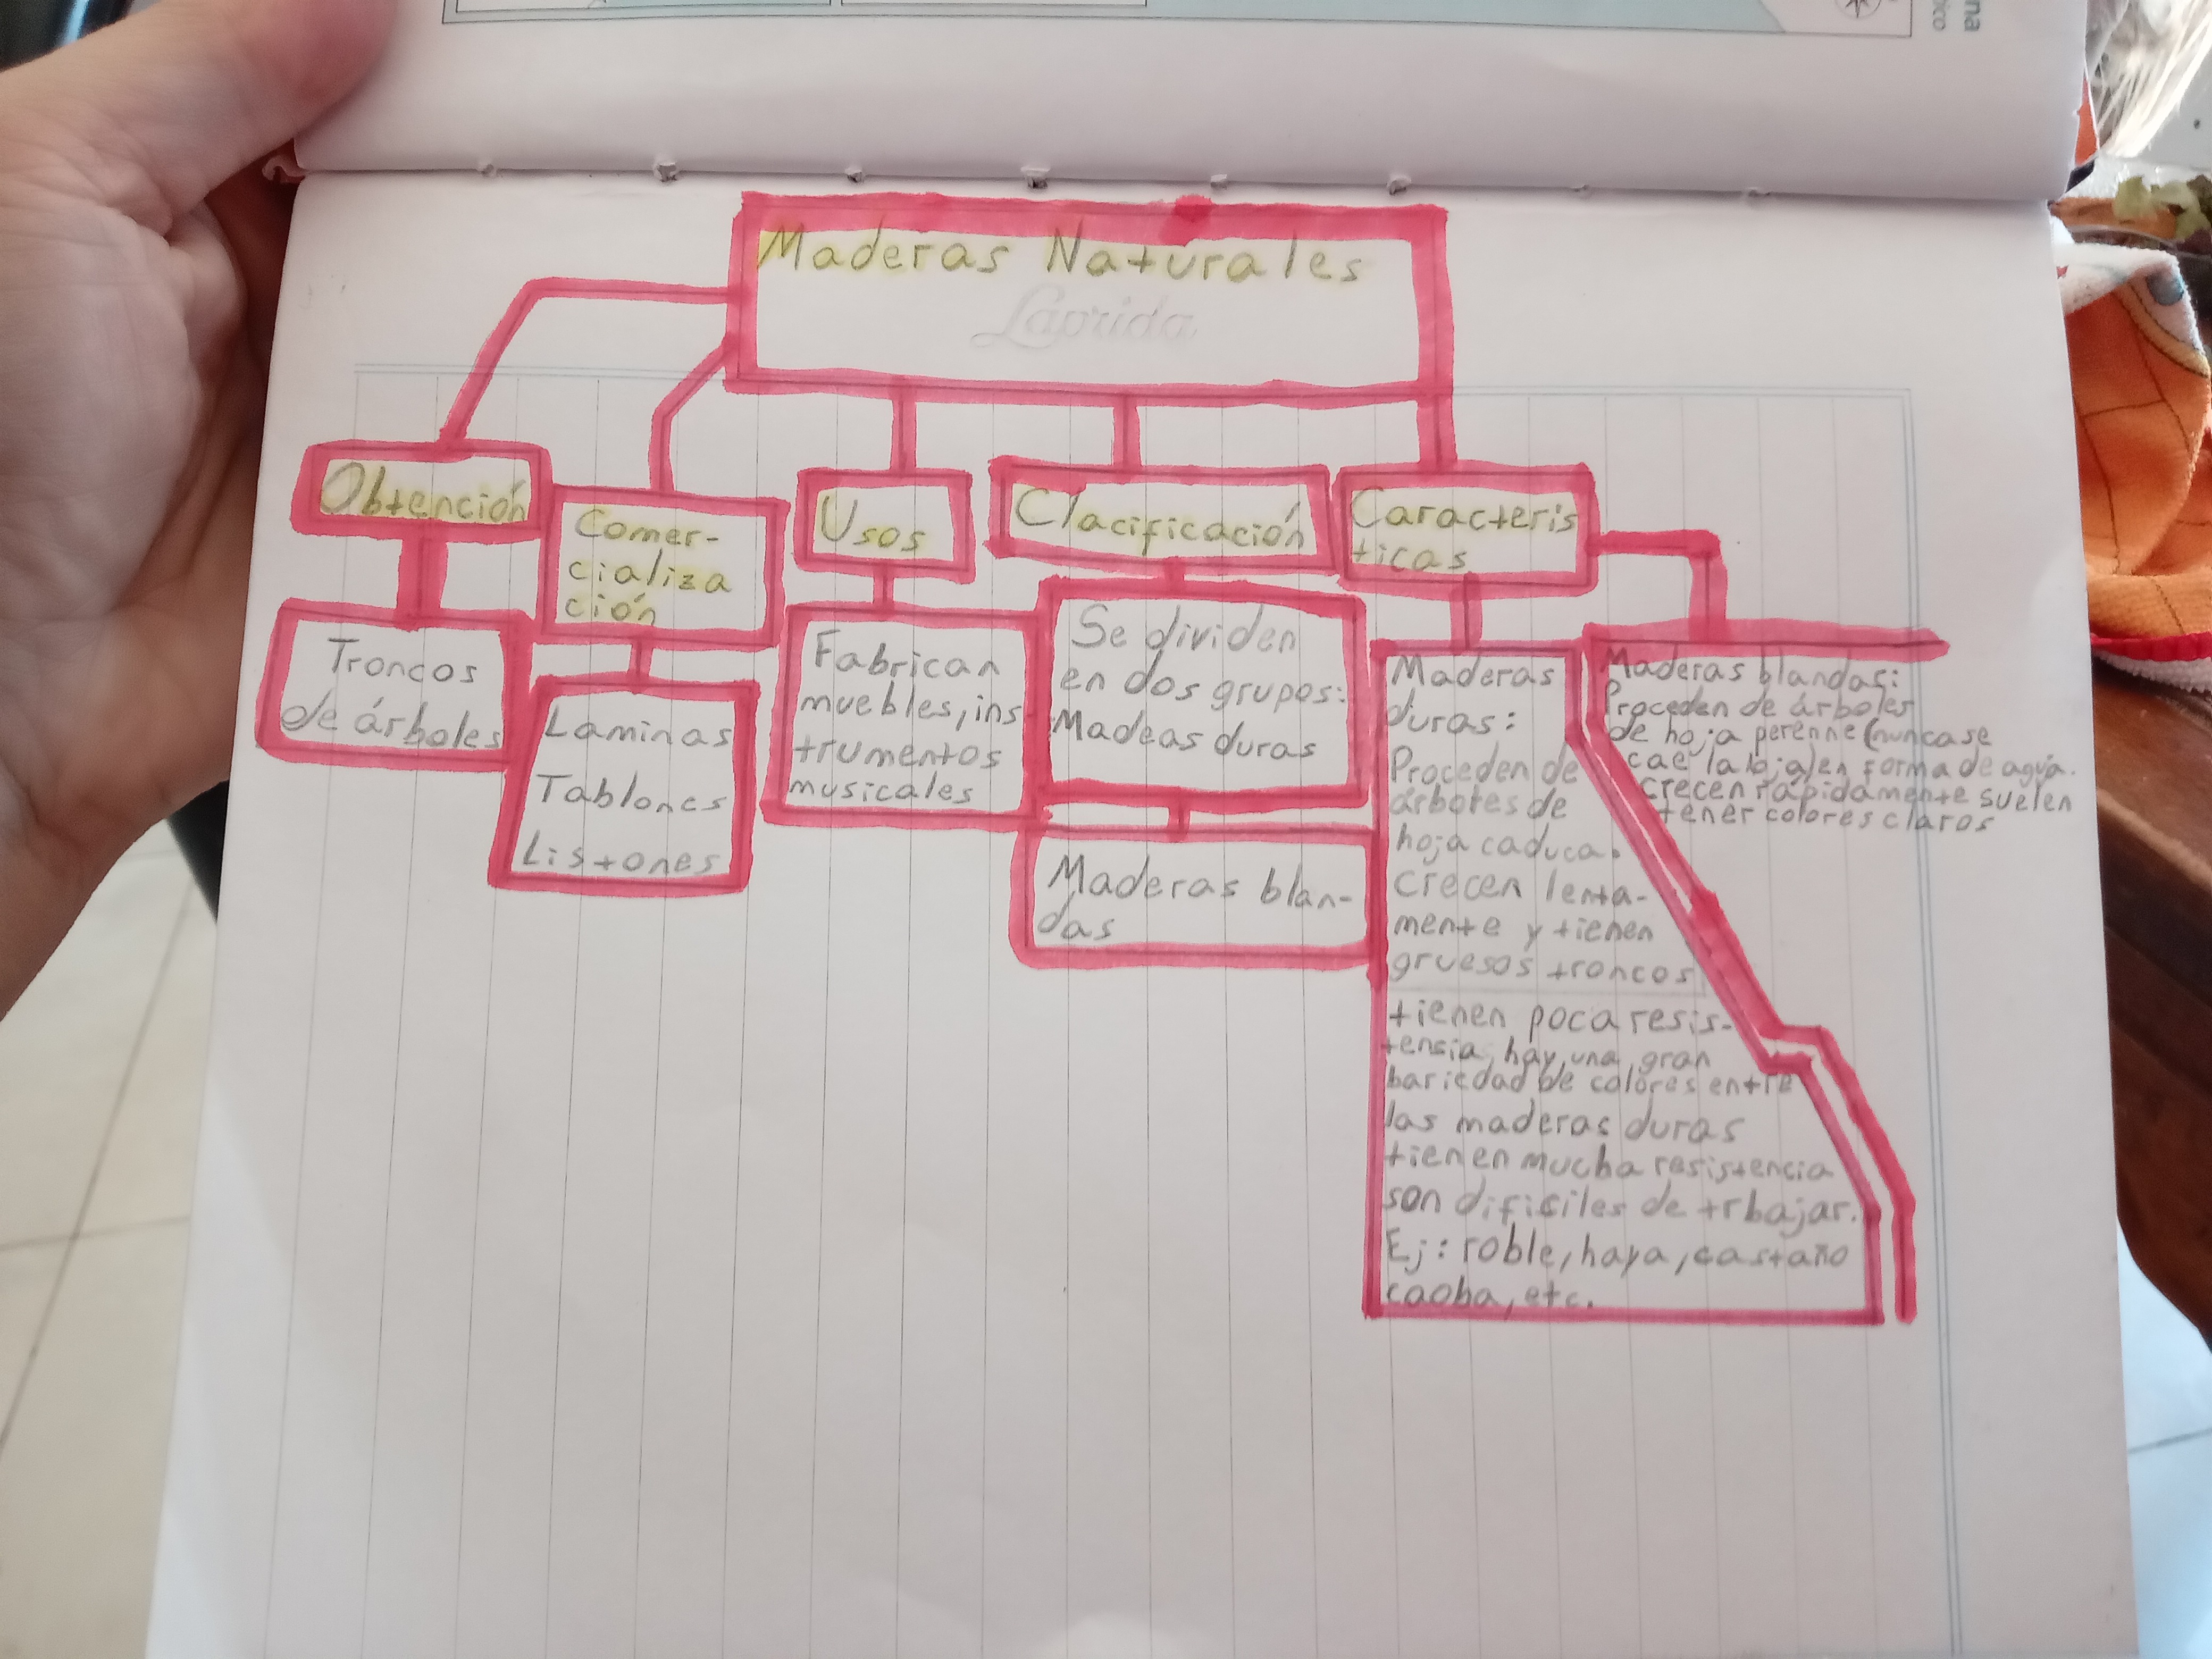 na
ico
Maderas Naturales
Laprida
Obtención
Troncos
de árboles
Comer-
cializa
ción
Laminas
Tablones
Listones
Usos
Fabrican
muebles, ins
trumentos
musicales
Clacificación
Se dividen
en dos grupos:
Madeas duras
Maderas blan-
das
Caracteris
ticas
Maderas
duras:
Proceden de
árboles de
hoja caduca.
crecen lenta-
mente y tienen
gruesos troncos
tienen poca resis-
tensia, hay una gran
bariedad de colores entre
las maderas duras
tienen mucha resistencia
son dificiles de trbajar.
Ej: roble, haya, castaño
caoba, etc.
Maderas blandas:
Proceden de árboles
de hoja perenne (nunca se
cae la hoja) en forma de aguja.
crecen rápidamente suelen
tener colores claros